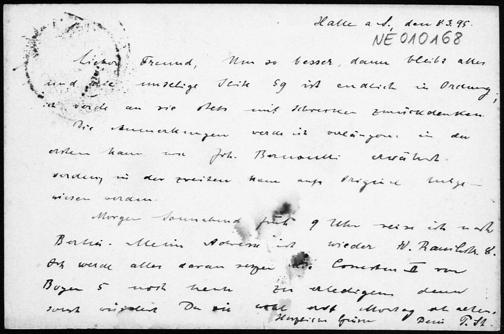 Halle a. S. den 8.3.95.
NE010168
Lieber Freund, Um so besser, dann bleibt alles
und die unselige Seite 59 ist endlich in Ordnung,
ich werde an sie stets mit Schrecken zurückdenken.
Die Anmerkungen werde ich verlängern: in der
ersten kann wo Joh. Bernoulli erwähnt
werden, in der zweiten kann aufs Original
wiesen werden.
Morgen Sonnabend früh 9 Uhr reise ich nach
Berlin. Meine Adresse ist wieder W.
Ich werde alles daran setzen die Correctur II von
Bogen 5 noch heute zu erledigen, denn
sonst würdest Du sie wohl erst Montag
Herzliche Grüsse Dein P. St.